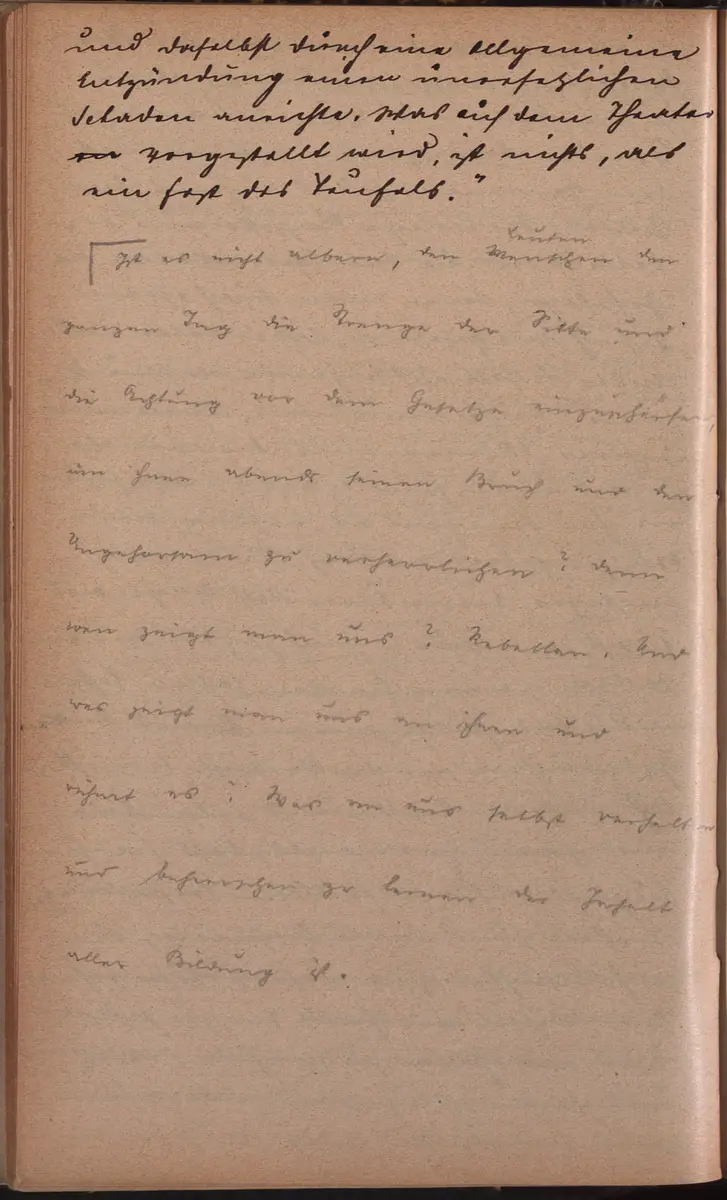 und daselbst durch eine allgemeine
Entzündung einen unersetzlichen
Schaden anrichte. Was auf dem Theater
vorgestellt wird, ist nichts, als
ein Fest des Teufels."
Leuten
Ist es nicht albern, den Menschen den
ganzen Tag die Strenge der Sitte und
die Achtung vor dem Gesetze einzuschärfen,
um ihnen abends seinen Bruch und den
Ungehorsam zu verherrlichen? Denn
wen zeigt man uns? Rebellen. Und
was zeigt man uns an ihnen und
rühmt es? Was an uns selbst verhalten
und beherrschen zu lernen der Inhalt
aller Bildung ist.